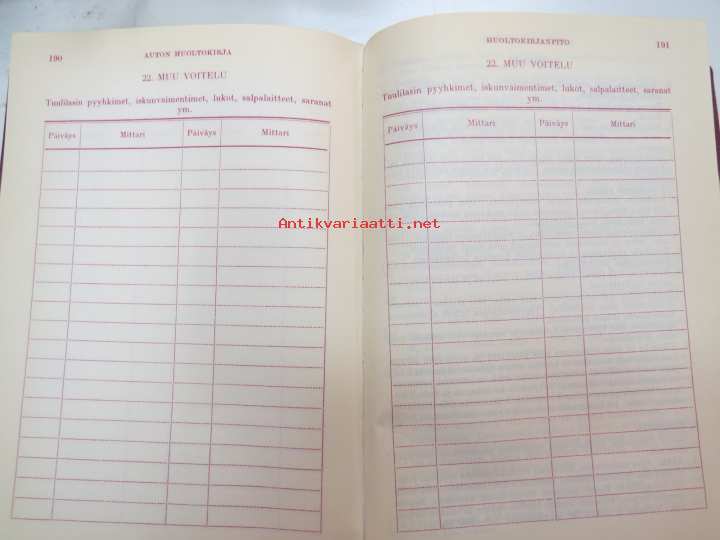 190
AUTON HUOLTOKIRJA
22. MUU VOITELU
Tuulilasin pyyhkimet, iskunvaimentimet, lukot, salpalaitteet, saranat
ym.
Päiväys Mittari Päiväys Mittari
HUOLTOKIRJANPITO
191
22. MUU VOITELU
Tuulilasin pyyhkimet, iskunvaimentimet, lukot, salpalaitteet, saranat
ym.
Päiväys Mittari Päiväys Mittari
Antikvariaatti.net